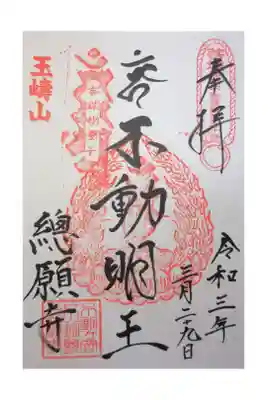 奉拝
令和三年
三月二十九日
不動明王
玉嶂山
總願寺